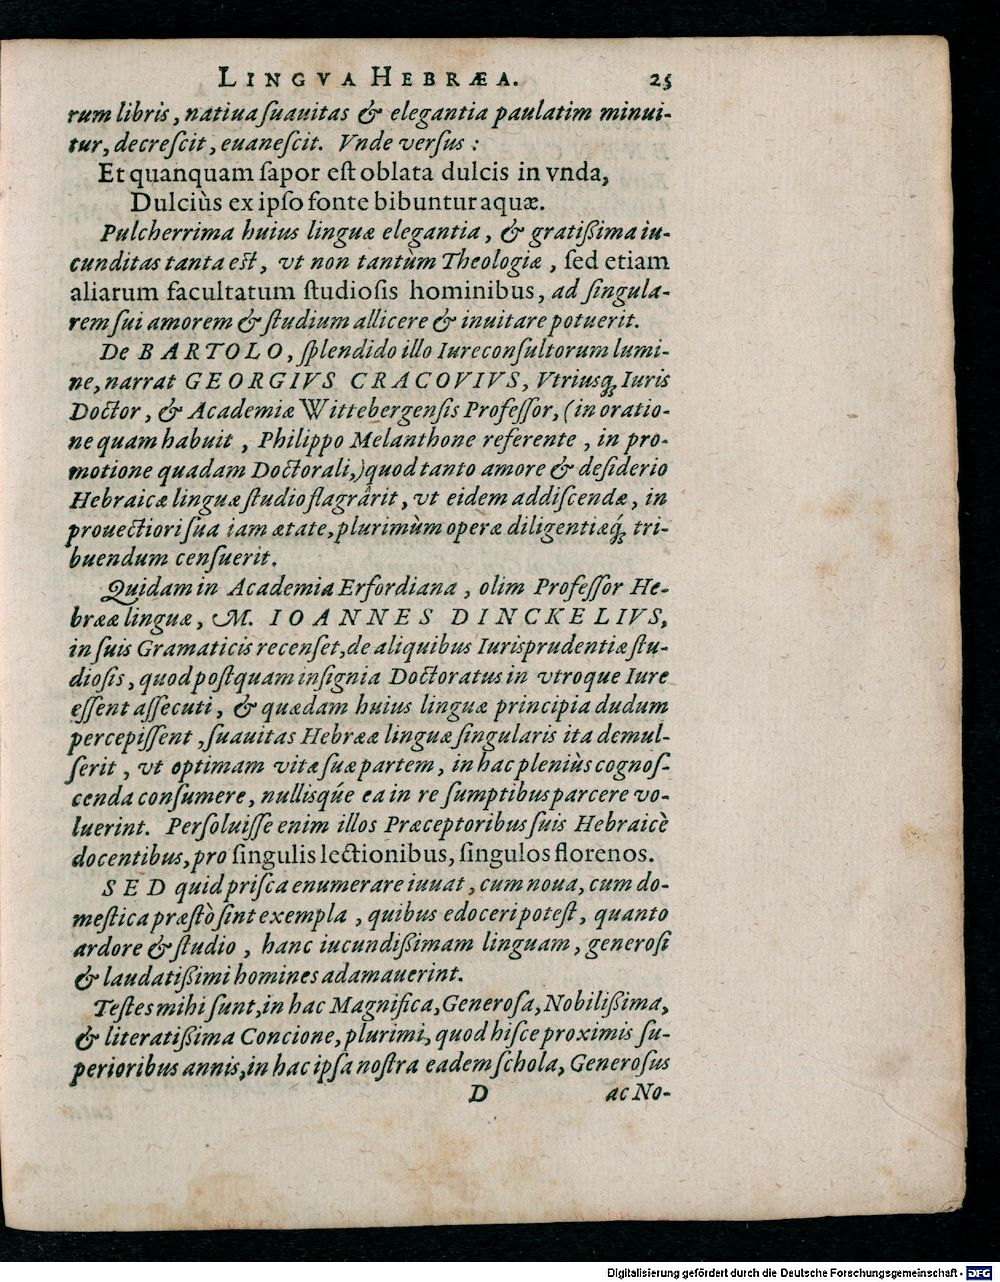 LINGVA HEBRÆA. 25
rum libris, natiua ſuauitas & elegantia paulatim minui-
tur, decreſcit, euaneſcit. Vnde verſus:
Et quanquam ſapor eſt oblata dulcis in vnda,
Dulciùs ex ipſo fonte bibuntur aquæ.
Pulcherrima huius linguæ elegantia, & gratißima iu-
cunditas tanta eſt, vt non tantùm Theologiæ, ſed etiam
aliarum facultatum ſtudioſis hominibus, ad ſingula-
rem ſui amorem & ſtudium allicere & inuitare potuerit.
De BARTOLO, ſplendido illo Iureconſultorum lumi-
ne, narrat GEORGIVS CRACOVIVS, Vtriusq́ꝫ Iuris
Doctor, & Academiæ Wittebergenſis Profeſſor, (in oratio-
ne quam habuit, Philippo Melanthone referente, in pro-
motione quadam Doctorali,) quod tanto amore & deſiderio
Hebraicæ linguæ ſtudio flagrârit, vt eidem addiſcendæ, in
prouectiori ſua iam ætate, plurimùm operæ diligentiæq́ꝫ tri-
buendum cenſuerit.
Quidam in Academia Erfordiana, olim Profeſſor He-
brææ linguæ, M. IOANNES DINCKELIVS,
in ſuis Gramaticis recenſet, de aliquibus Iurisprudentiæ ſtu-
dioſis, quod poſtquam inſignia Doctoratus in vtroque Iure
eſſent aſſecuti, & quædam huius linguæ principia dudum
percepiſſent, ſuauitas Hebrææ linguæ ſingularis ita demul-
ſerit, vt optimam vitæ ſuæ partem, in hac pleniùs cognoſ-
cenda conſumere, nullisq́ue ea in re ſumptibus parcere vo-
luerint. Perſoluiſſe enim illos Præceptoribus ſuis Hebraicè
docentibus, pro ſingulis lectionibus, ſingulos florenos.
SED quid priſca enumerare iuuat, cum noua, cum do-
meſtica præſtò ſint exempla, quibus edoceri poteſt, quanto
ardore & ſtudio, hanc iucundißimam linguam, generoſi
& laudatißimi homines adamauerint.
Teſtes mihi ſunt, in hac Magnifica, Generoſa, Nobilißima,
& literatißima Concione, plurimi, quod hiſce proximis ſu-
perioribus annis, in hac ipſa noſtra eadem ſchola, Generoſus
D ac No-
Digitalisierung gefördert durch die Deutsche Forschungsgemeinschaft - DFG